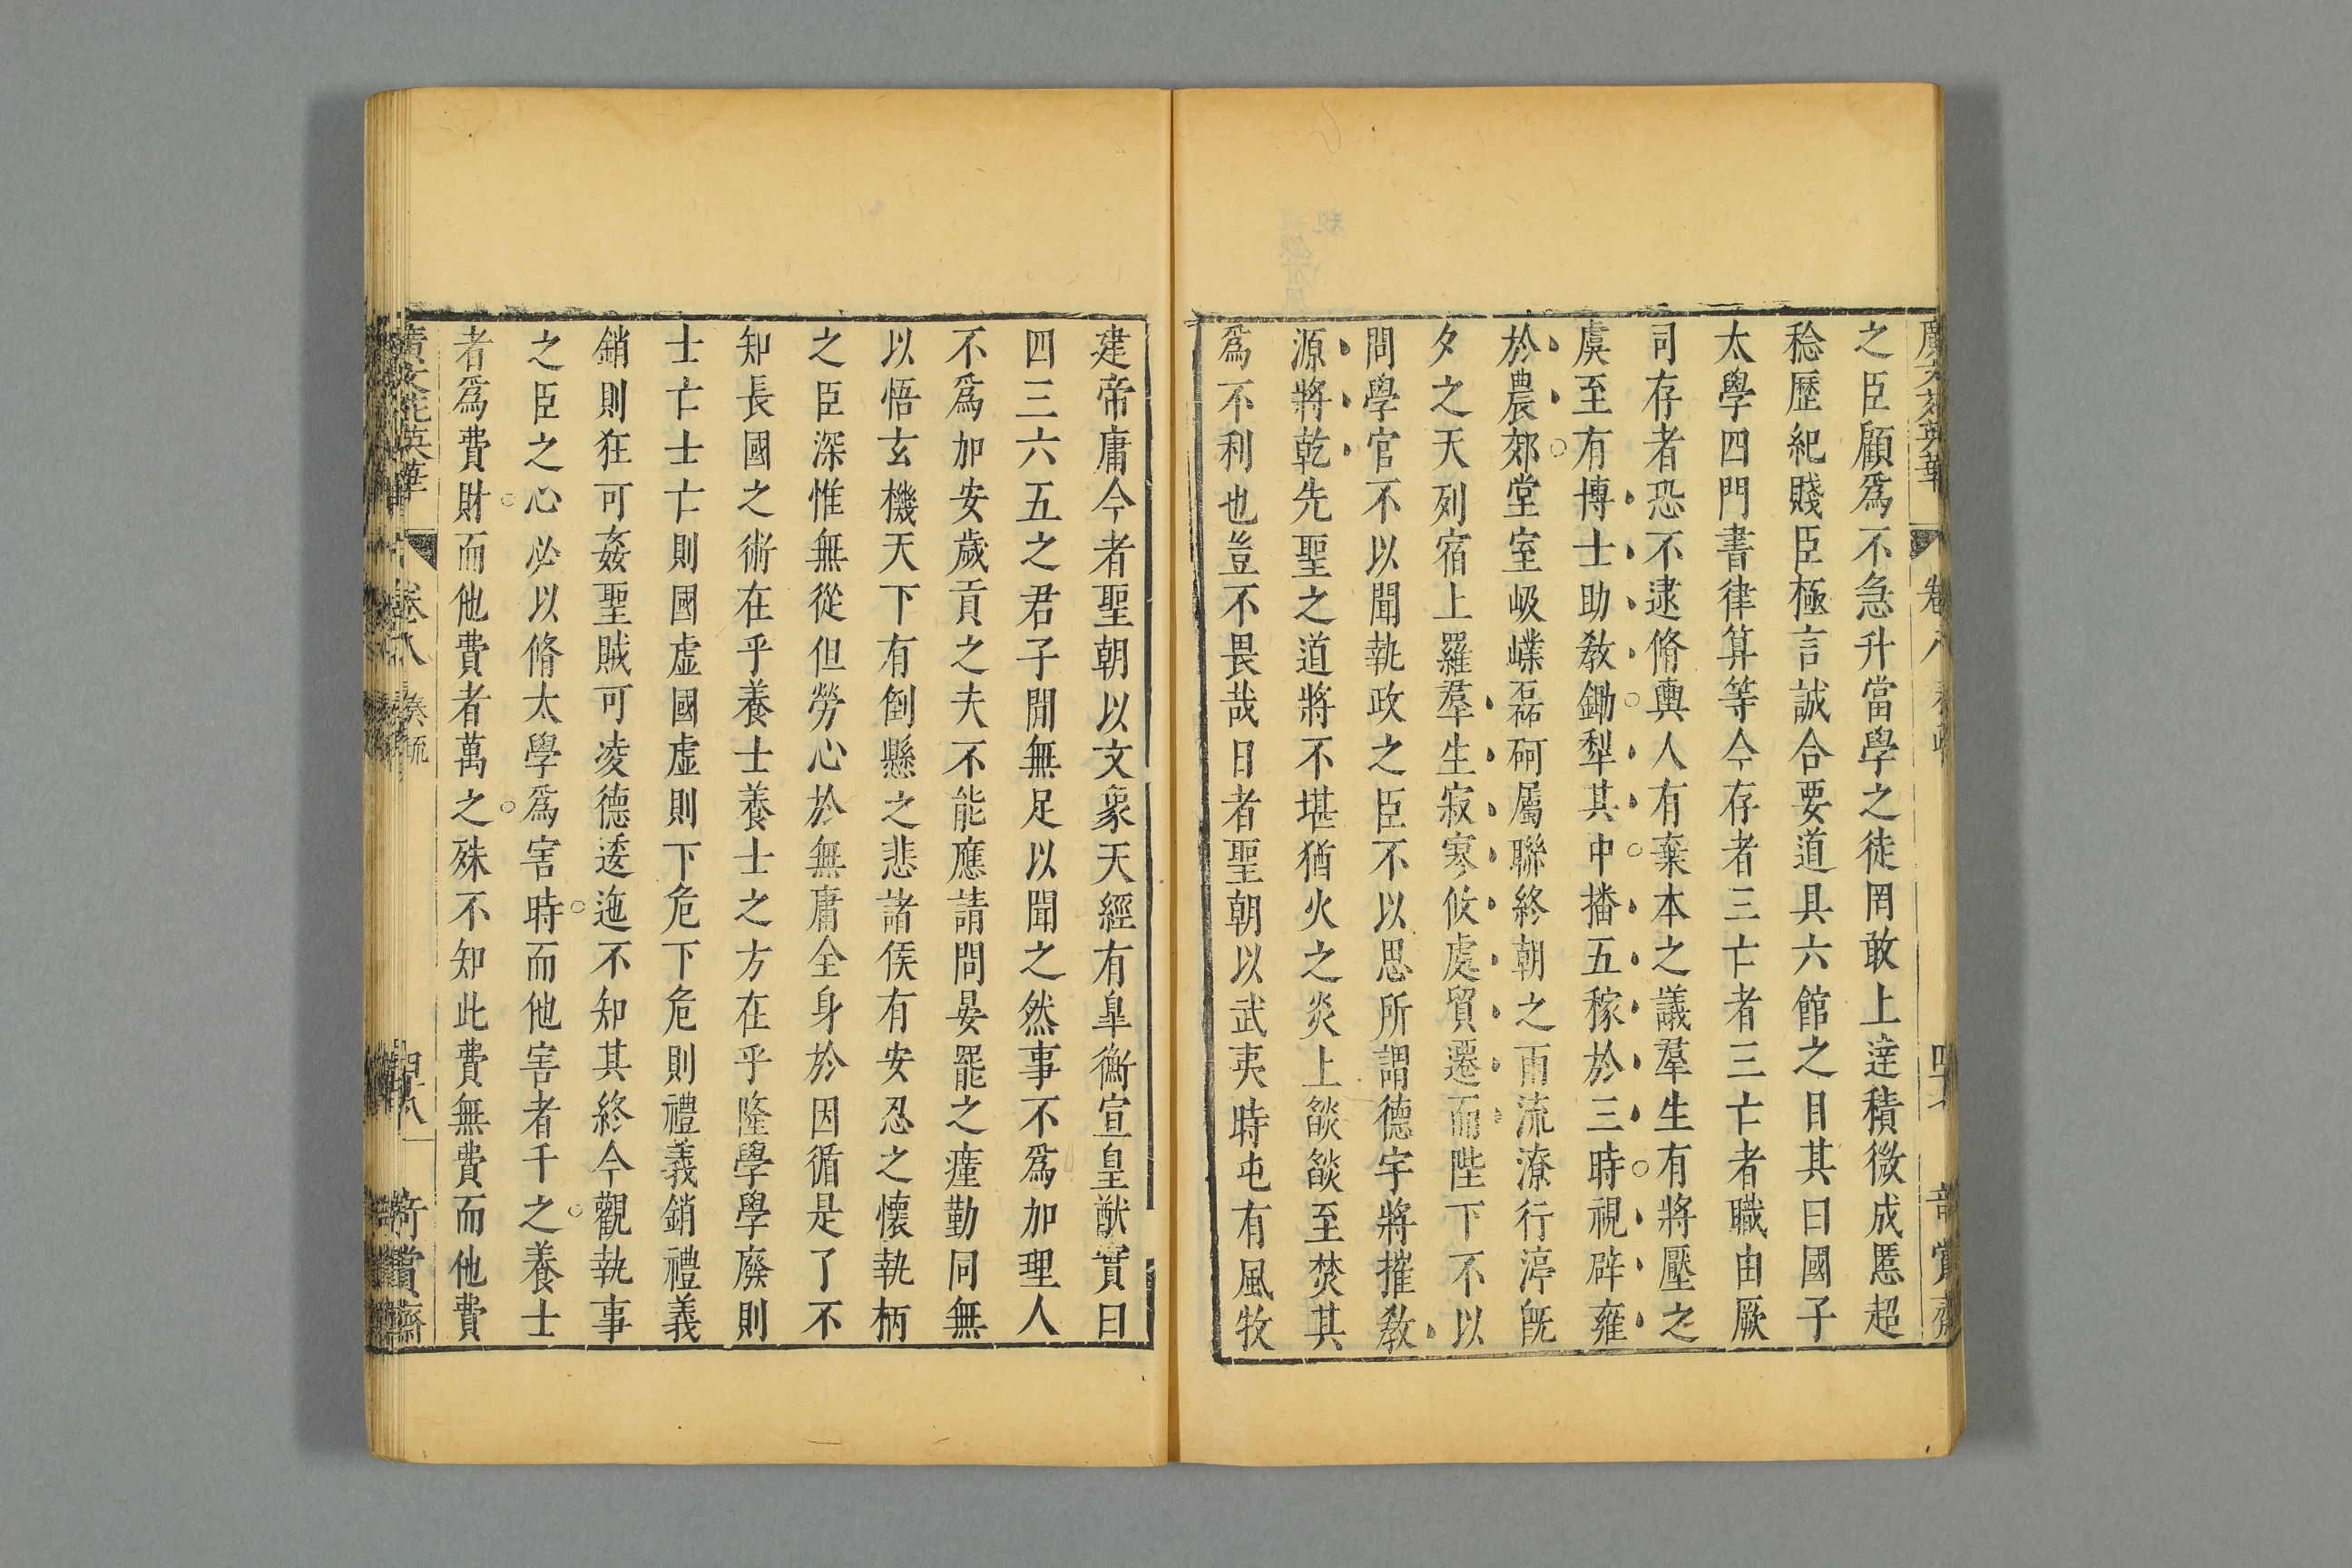 之臣顧爲不急升當學之徒罔敢上達積微成慝超
稔歷紀賤臣極言誠合要道具六館之目其曰國子
太學四門書律算等今存者三亡者三亡者職由厥
司存者恐不逮脩輿人有棄本之議羣生有將壓之
虞至有博士助敎鋤犁其中播五稼於三時視辟雍
於農郊堂室岋㠔磊砢屬聯終朝之雨流潦行渟旣
夕之天列宿上羅羣生寂寥攸處貿遷而陛下不以
問學官不以聞執政之臣不以思所謂德宇將摧敎
源將乾先聖之道將不堪猶火之炎上燄燄至焚其
爲不利也豈不畏哉日者聖朝以武夷時屯有風牧
建帝庸今者聖朝以文象天經有皐衡宣皇猷實曰
四三六五之君子閒無足以聞之然事不爲加理人
不爲加安歲貢之夫不能應請問晏罷之瘽勤同無
以悟玄機天下有倒懸之悲諸侯有安忍之懷執柄
之臣深惟無從但勞心於無庸全身於因循是了不
知長國之術在乎養士養士之方在乎隆學學廢則
士亡士亡則國虛國虛則下危下危則禮義銷禮義
銷則狂可姦聖賊可凌德逶迤不知其終今觀執事
之臣之心必以脩太學爲害時而他害者千之養士
者爲費財而他費者萬之殊不知此費無費而他費
廣文苑英華 卷八 奏疏 四十八 奇賞齋